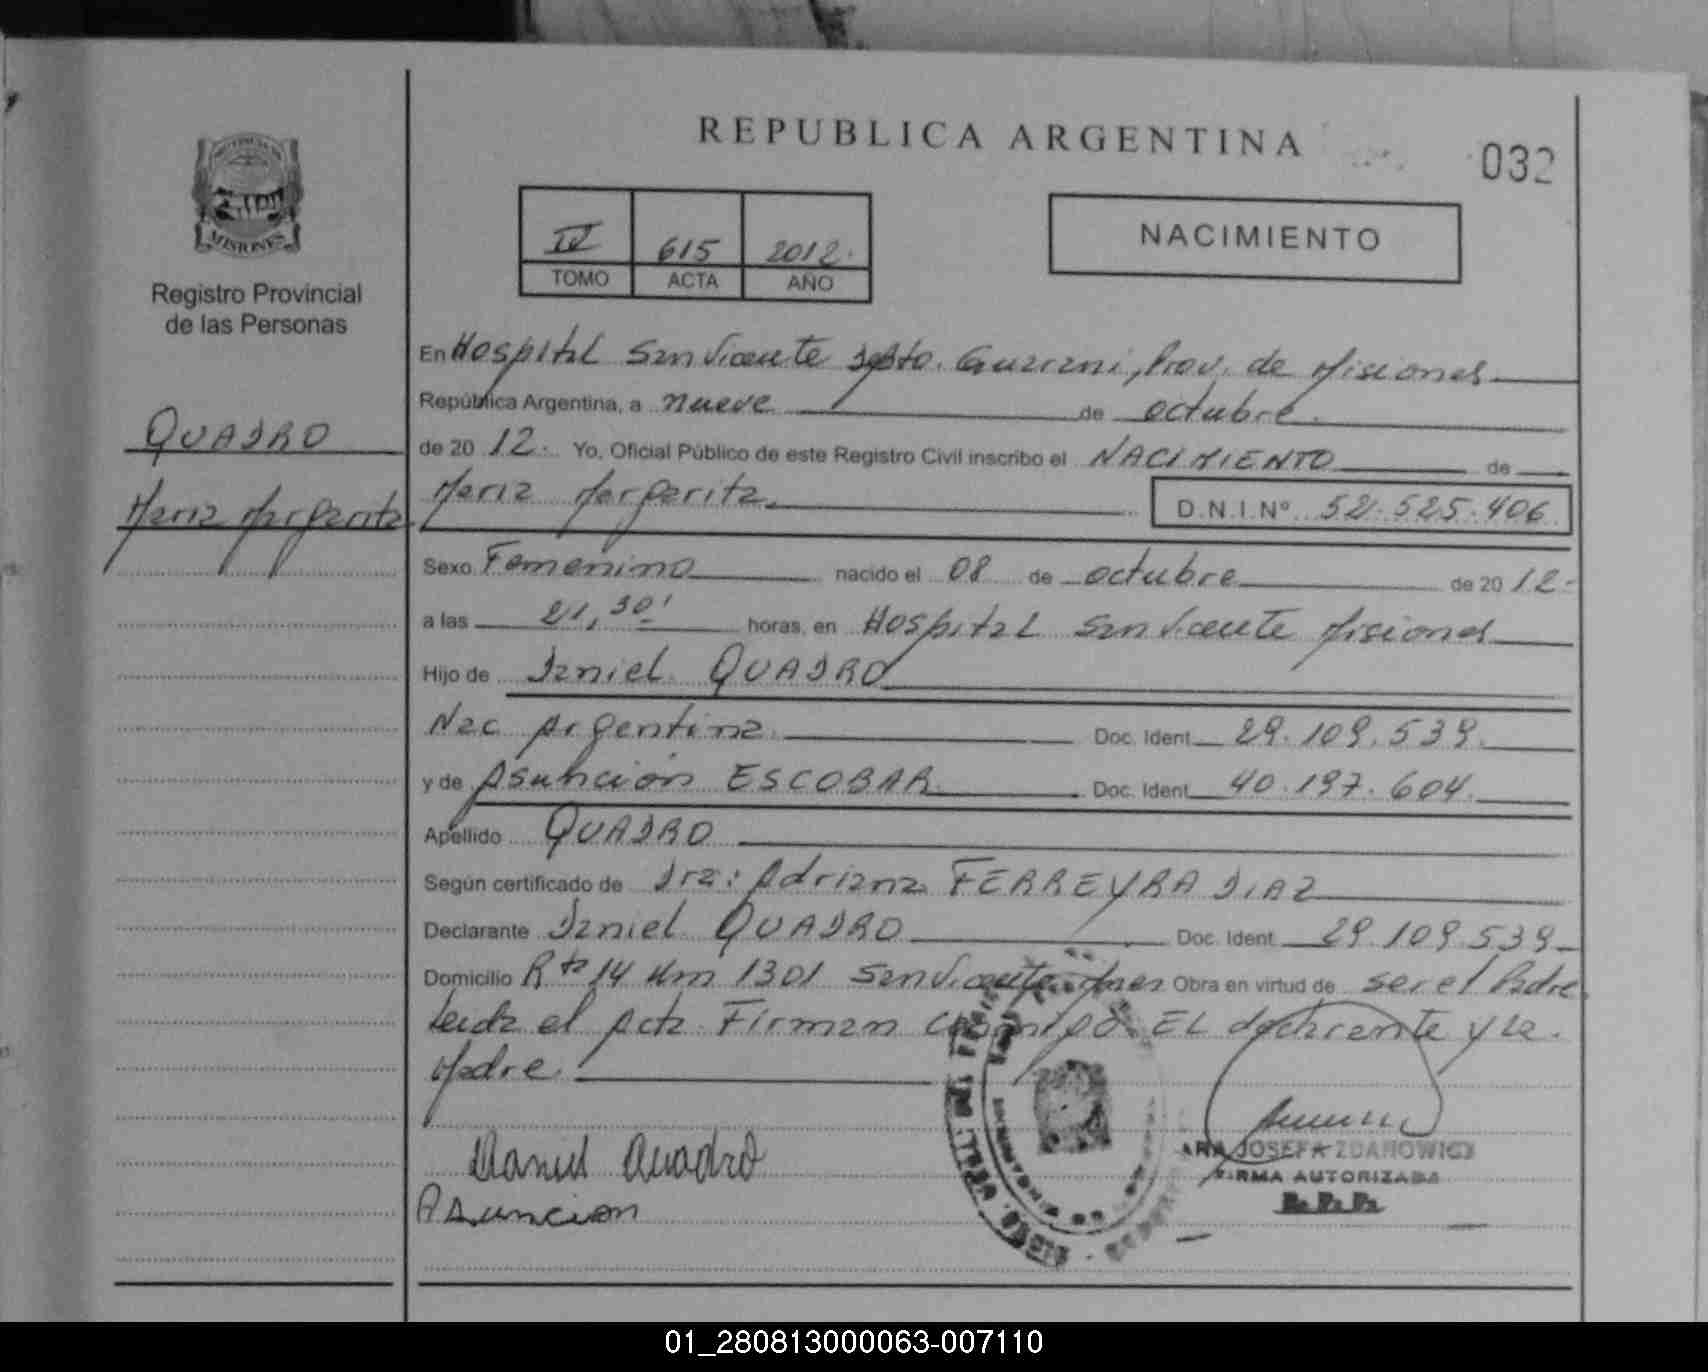 REPUBLICA ARGENTINA
032
MISIONES
Registro Provincial
de las Personas
IV 615 2012.
TOMO ACTA AÑO
NACIMIENTO
QUADRO
Maria Margarita
En Hospital San Vicente Dpto. Guarani, Prov. de Misiones
República Argentina, a nueve de octubre.
de 20 12. Yo, Oficial Público de este Registro Civil inscribo el NACIMIENTO de
Maria Margarita D.N.I.Nº 52.525.406
Sexo Femenino nacido el 08 de octubre de 20 12.
a las 21,30' horas, en Hospital San Vicente Misiones
Hijo de Daniel QUADRO
Nac Argentina. Doc. Ident. 29.109.539.
y de Asunción ESCOBAR Doc. Ident. 40.197.604.
Apellido QUADRO
Según certificado de Dra: Adriana FERREYRA DIAZ
Declarante Daniel QUADRO Doc. Ident. 29.109.539
Domicilio Rta 14 Km 1301 San Vicente Mnes Obra en virtud de ser el Padre
Leida el Acta Firman conmigo EL declarante y la.
Madre.
Daniel Quadro
Asuncion
JOSEFA ZDANOWICZ
FIRMA AUTORIZADA
R.P.P.
01_280813000063-007110